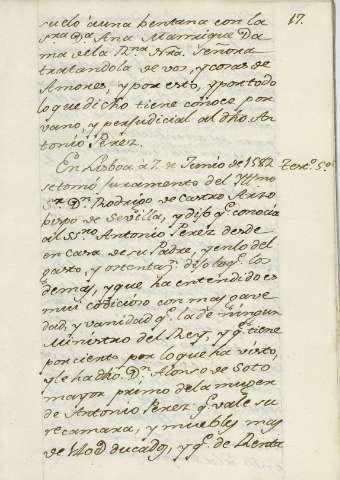 17.
suelo à una bentana con la
s.ra D.a Ana Manrrique Da
ma de la R.na Nra. Señora
tratandola de vos, y cosas de
Amores, y por esto, y por todo
lo que dicho tiene conoce por
vano, y perjudicial al dho An
tonio Perez.
En Lisboa à 7. de Junio de 1582 Test.o 5.o
se tomó juramento del Yll.mo
S.r D.n Rodrigo de Castro Arzo
bispo de Sevilla, y dijo q.e conocia
al Antonio Perez desde
en casa de su Padre, y en lo del
gasto, y ostentaz.n dijo lo q.e los
demas, y que ha entendido es
mui codicioso con mas grave
dad, y vanidad q.e la de ningun
Ministro del Rey, y q.e tiene
por ciento por lo que ha visto,
y le ha dho. D.n Alonso de Soto
mayor primo de la muger
de Antonio Perez q.e vale su
recamara, y muebles mas
de ducados, y q.e de Renta